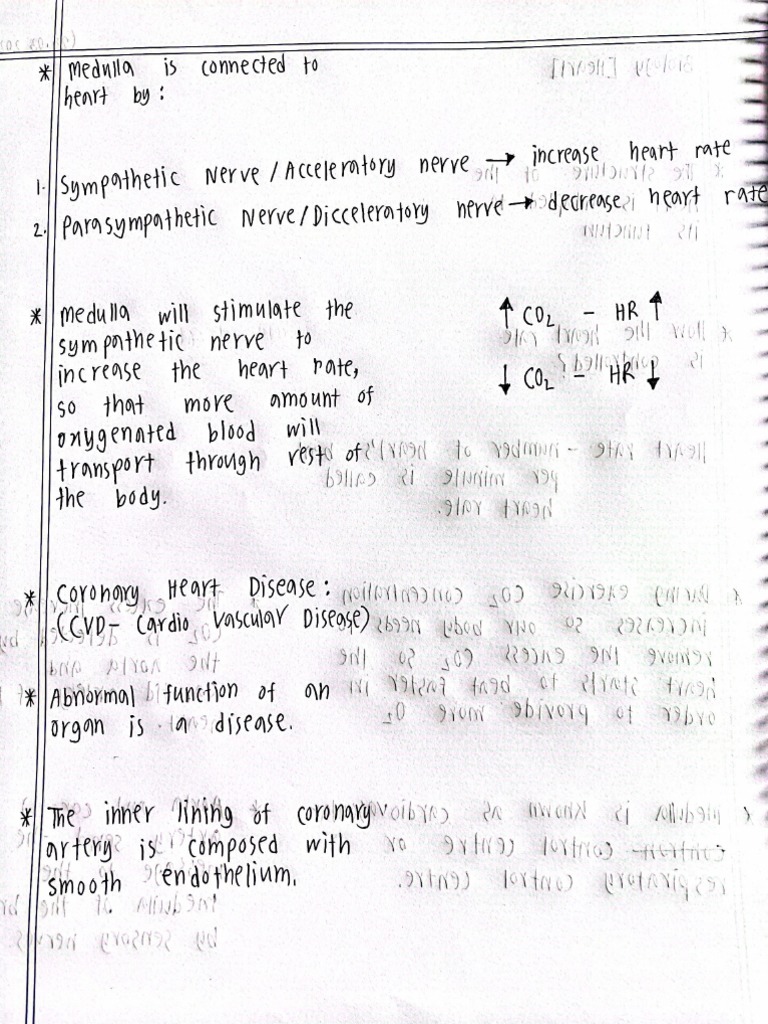 * Medulla is connected to
heart by:
1. Sympathetic Nerve / Acceleratory nerve → increase heart rate
2. Parasympathetic Nerve/Dicceleratory nerve → decrease heart rate
* Medulla will stimulate the
sympathetic nerve to
increase the heart rate,
so that more amount of
oxygenated blood will
transport through rest of
the body.
↑ CO₂ - HR ↑
↓ CO₂ - HR ↓
* Coronary Heart Disease:
(CVD- Cardio Vascular Disease)
* Abnormal function of an
organ is a disease.
* The inner lining of coronary
artery is composed with
smooth endothelium.